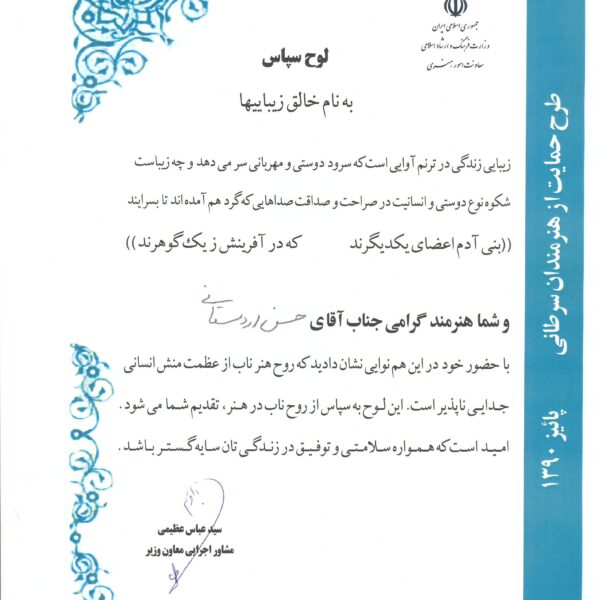 جمهوری اسلامی ایران
وزارت فرهنگ و ارشاد اسلامی
معاونت امور هنری
لوح سپاس
به نام خالق زیباییها
زیبایی زندگی در ترنم آوایی است که سرود دوستی و مهربانی سر می دهد و چه زیباست
شکوه نوع دوستی و انسانیت در صراحت و صداقت صداهایی که گرد هم آمده اند تا بسرایند
((بنی آدم اعضای یکدیگرند که در آفرینش ز یک گوهرند))
و شما هنرمند گرامی جناب آقای حسن اردستانی
با حضور خود در این هم نوایی نشان دادید که روح هنر ناب از عظمت منش انسانی
جدایی ناپذیر است. این لوح به سپاس از روح ناب در هنر، تقدیم شما می شود.
امید است که همواره سلامتی و توفیق در زندگی تان سایه گستر باشد.
سید عباس عظیمی
مشاور اجرایی معاون وزیر
طرح حمایت از هنرمندان سرطانی
پائیز ۱۳۹۰